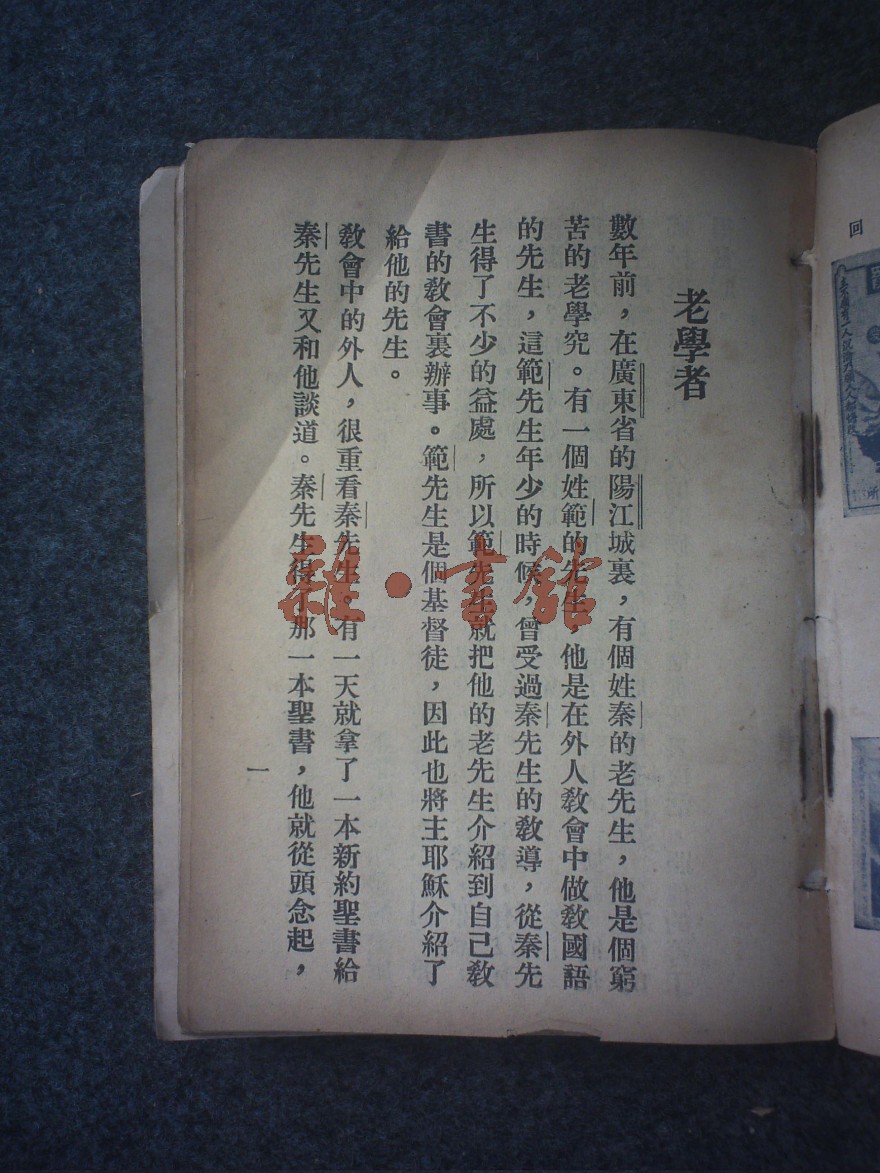 老學者
數年前，在廣東省的陽江城裏，有個姓秦的老先生，他是個窮
苦的老學究。有一個姓範的先生，他是在外人敎會中做敎國語
的先生，這範先生年少的時候，曾受過秦先生的敎導，從秦先
生得了不少的益處，所以範先生就把他的老先生介紹到自己敎
書的敎會裏辦事。範先生是個基督徒，因此也將主耶穌介紹了
給他的先生。
敎會中的外人，很重看秦先生。有一天就拿了一本新約聖書給
秦先生又和他談道。秦先生得了那一本聖書，他就從頭念起，
一
回
雜·書館